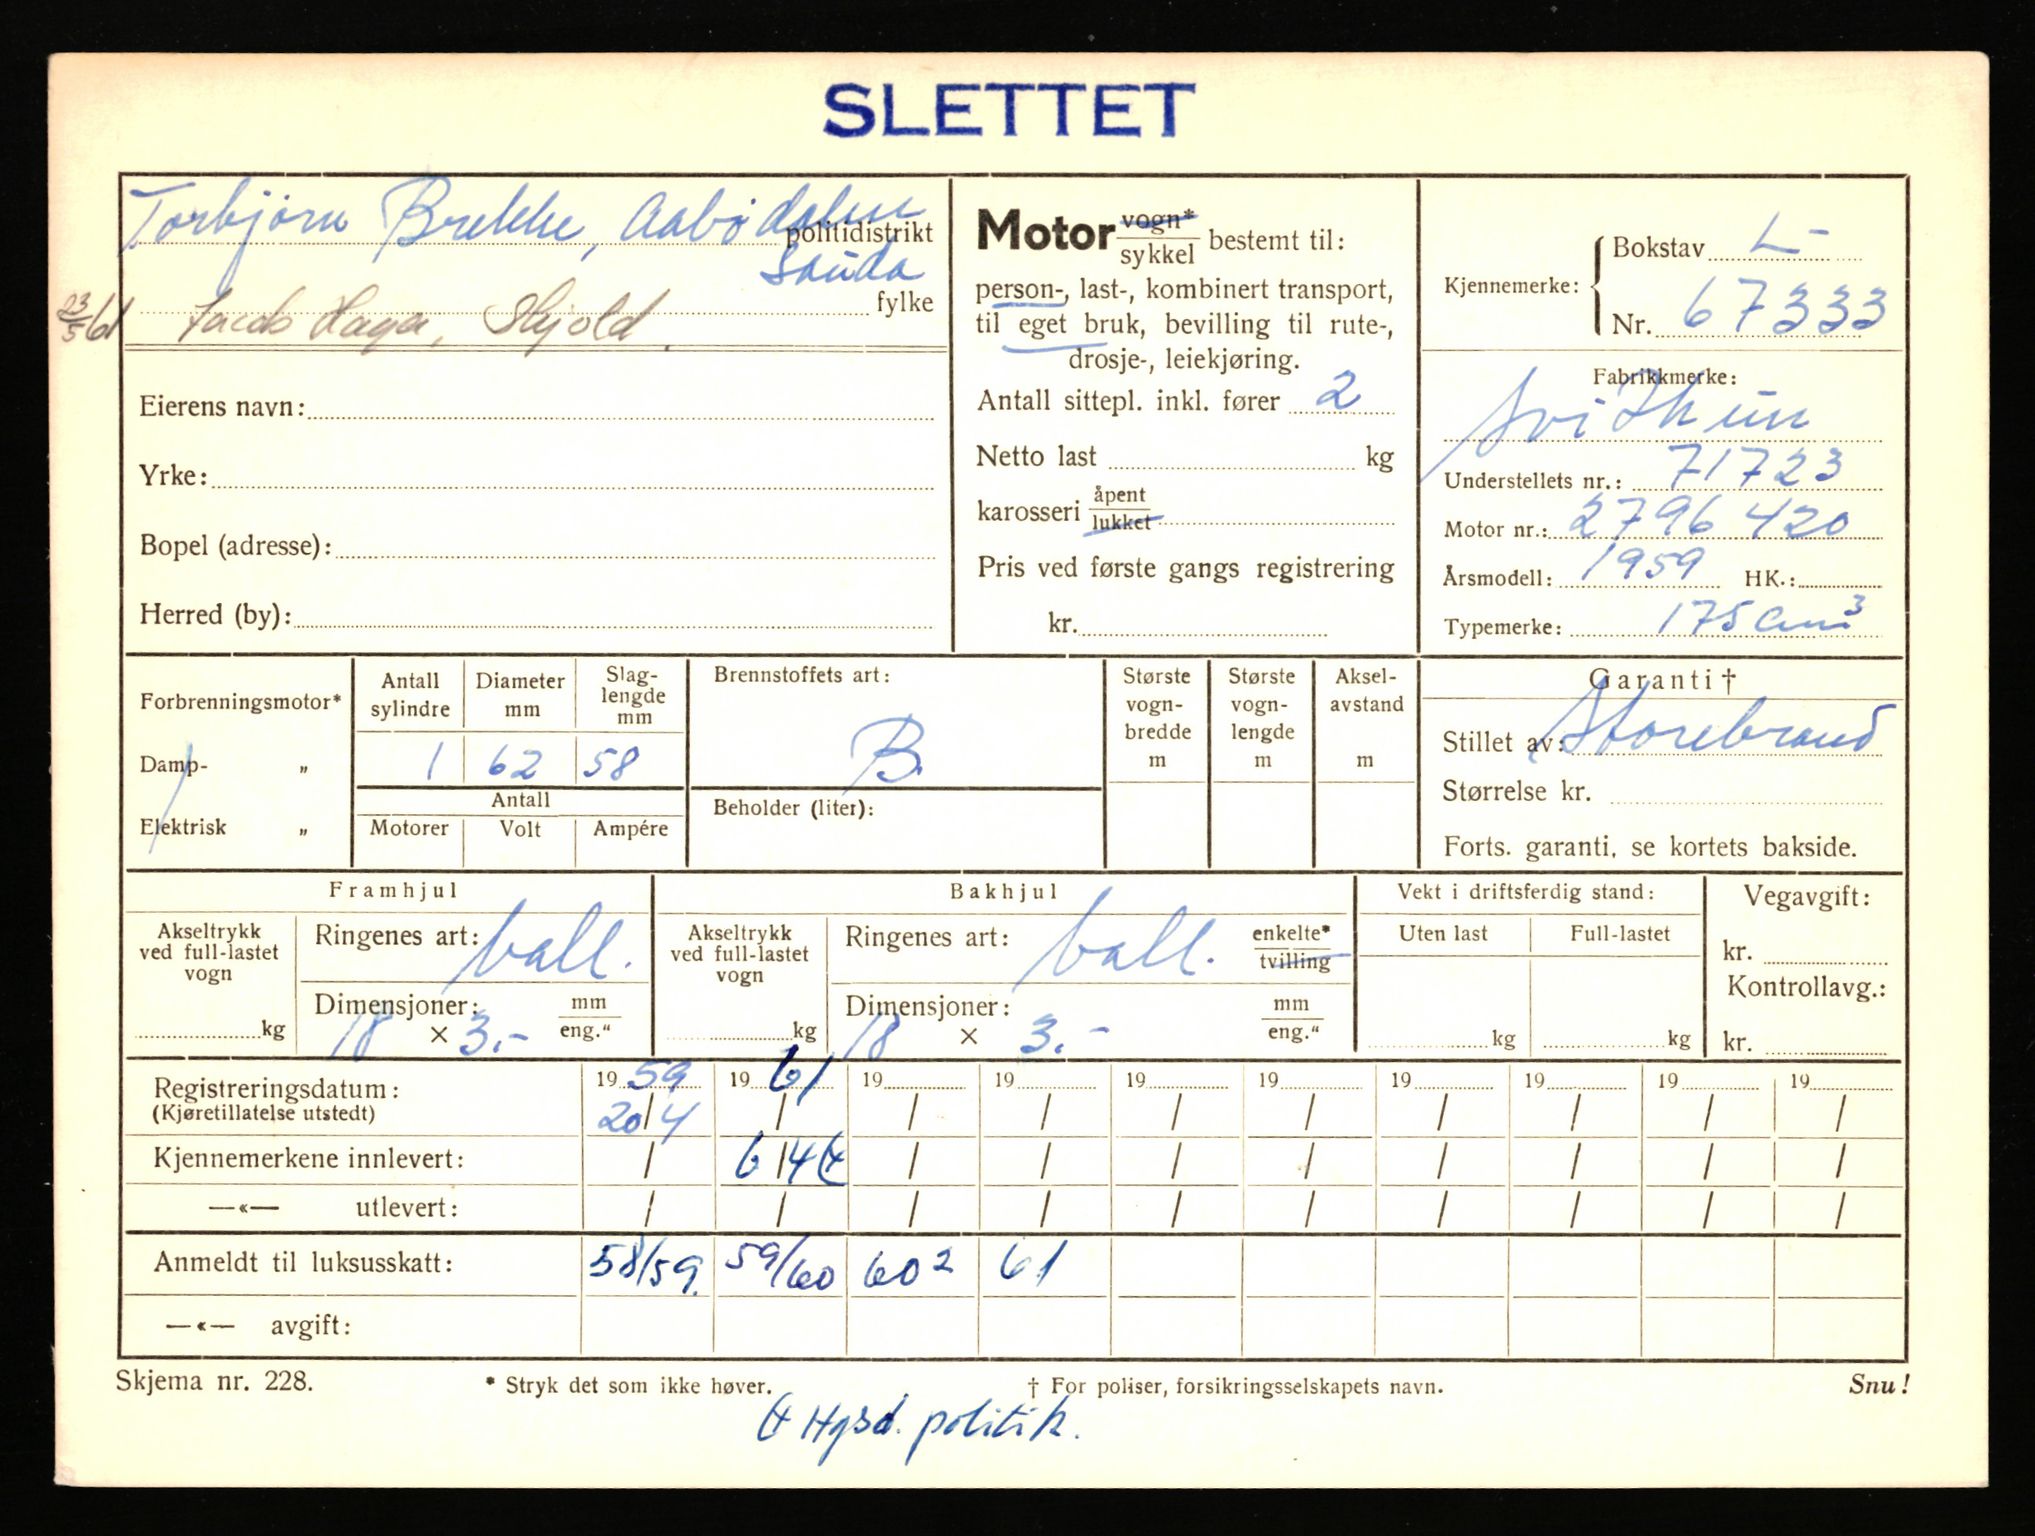 SLETTET
Torbjørn Brekke, Aabødalen
politidistrikt
Sauda
23/5 61 Jacob Haga, Skjold.
fylke
Eierens navn:
Yrke:
Bopel (adresse):
Herred (by):
Motor vogn* / sykkel bestemt til:
person-, last-, kombinert transport,
til eget bruk, bevilling til rute-,
drosje-, leiekjøring.
Antall sittepl. inkl. fører 2
Netto last kg
karosseri åpent / lukket
Pris ved første gangs registrering
kr.
Kjennemerke: { Bokstav L-
Nr. 67333
Fabrikkmerke:
Svithun
Understellets nr.: 71723
Motor nr.: 2796420
Årsmodell: 1959 HK.:
Typemerke: 175 cm³
Forbrenningsmotor*
Damp- „
Elektrisk „
Antall sylindre Diameter mm Slag-lengde mm
1 62 58
Antall
Motorer Volt Ampére
Brennstoffets art:
B.
Beholder (liter):
Største vogn-bredde m
Største vogn-lengde m
Aksel-avstand m
Garanti †
Stillet av: Storebrand
Størrelse kr.
Forts. garanti, se kortets bakside.
Framhjul
Akseltrykk ved full-lastet vogn
kg
Ringenes art: ball.
Dimensjoner: mm / eng."
18 × 3.-
Bakhjul
Akseltrykk ved full-lastet vogn
kg
Ringenes art: ball. enkelte* / tvilling
Dimensjoner: mm / eng."
18 × 3.-
Vekt i driftsferdig stand:
Uten last Full-lastet
kg kg
Vegavgift:
kr.
Kontrollavg.:
kr.
Registreringsdatum: 19 59 19 61 19 19 19 19 19 19 19 19
(Kjøretillatelse utstedt) 20/4 / / / / / / / / /
Kjennemerkene innlevert: / 6/4 / / / / / / / /
—«— utlevert: / / / / / / / / / /
Anmeldt til luksusskatt: 58/59. 59/60 60² 61
—«— avgift:
Skjema nr. 228. * Stryk det som ikke høver. † For poliser, forsikringsselskapets navn. Snu!
Hgsd. politik.